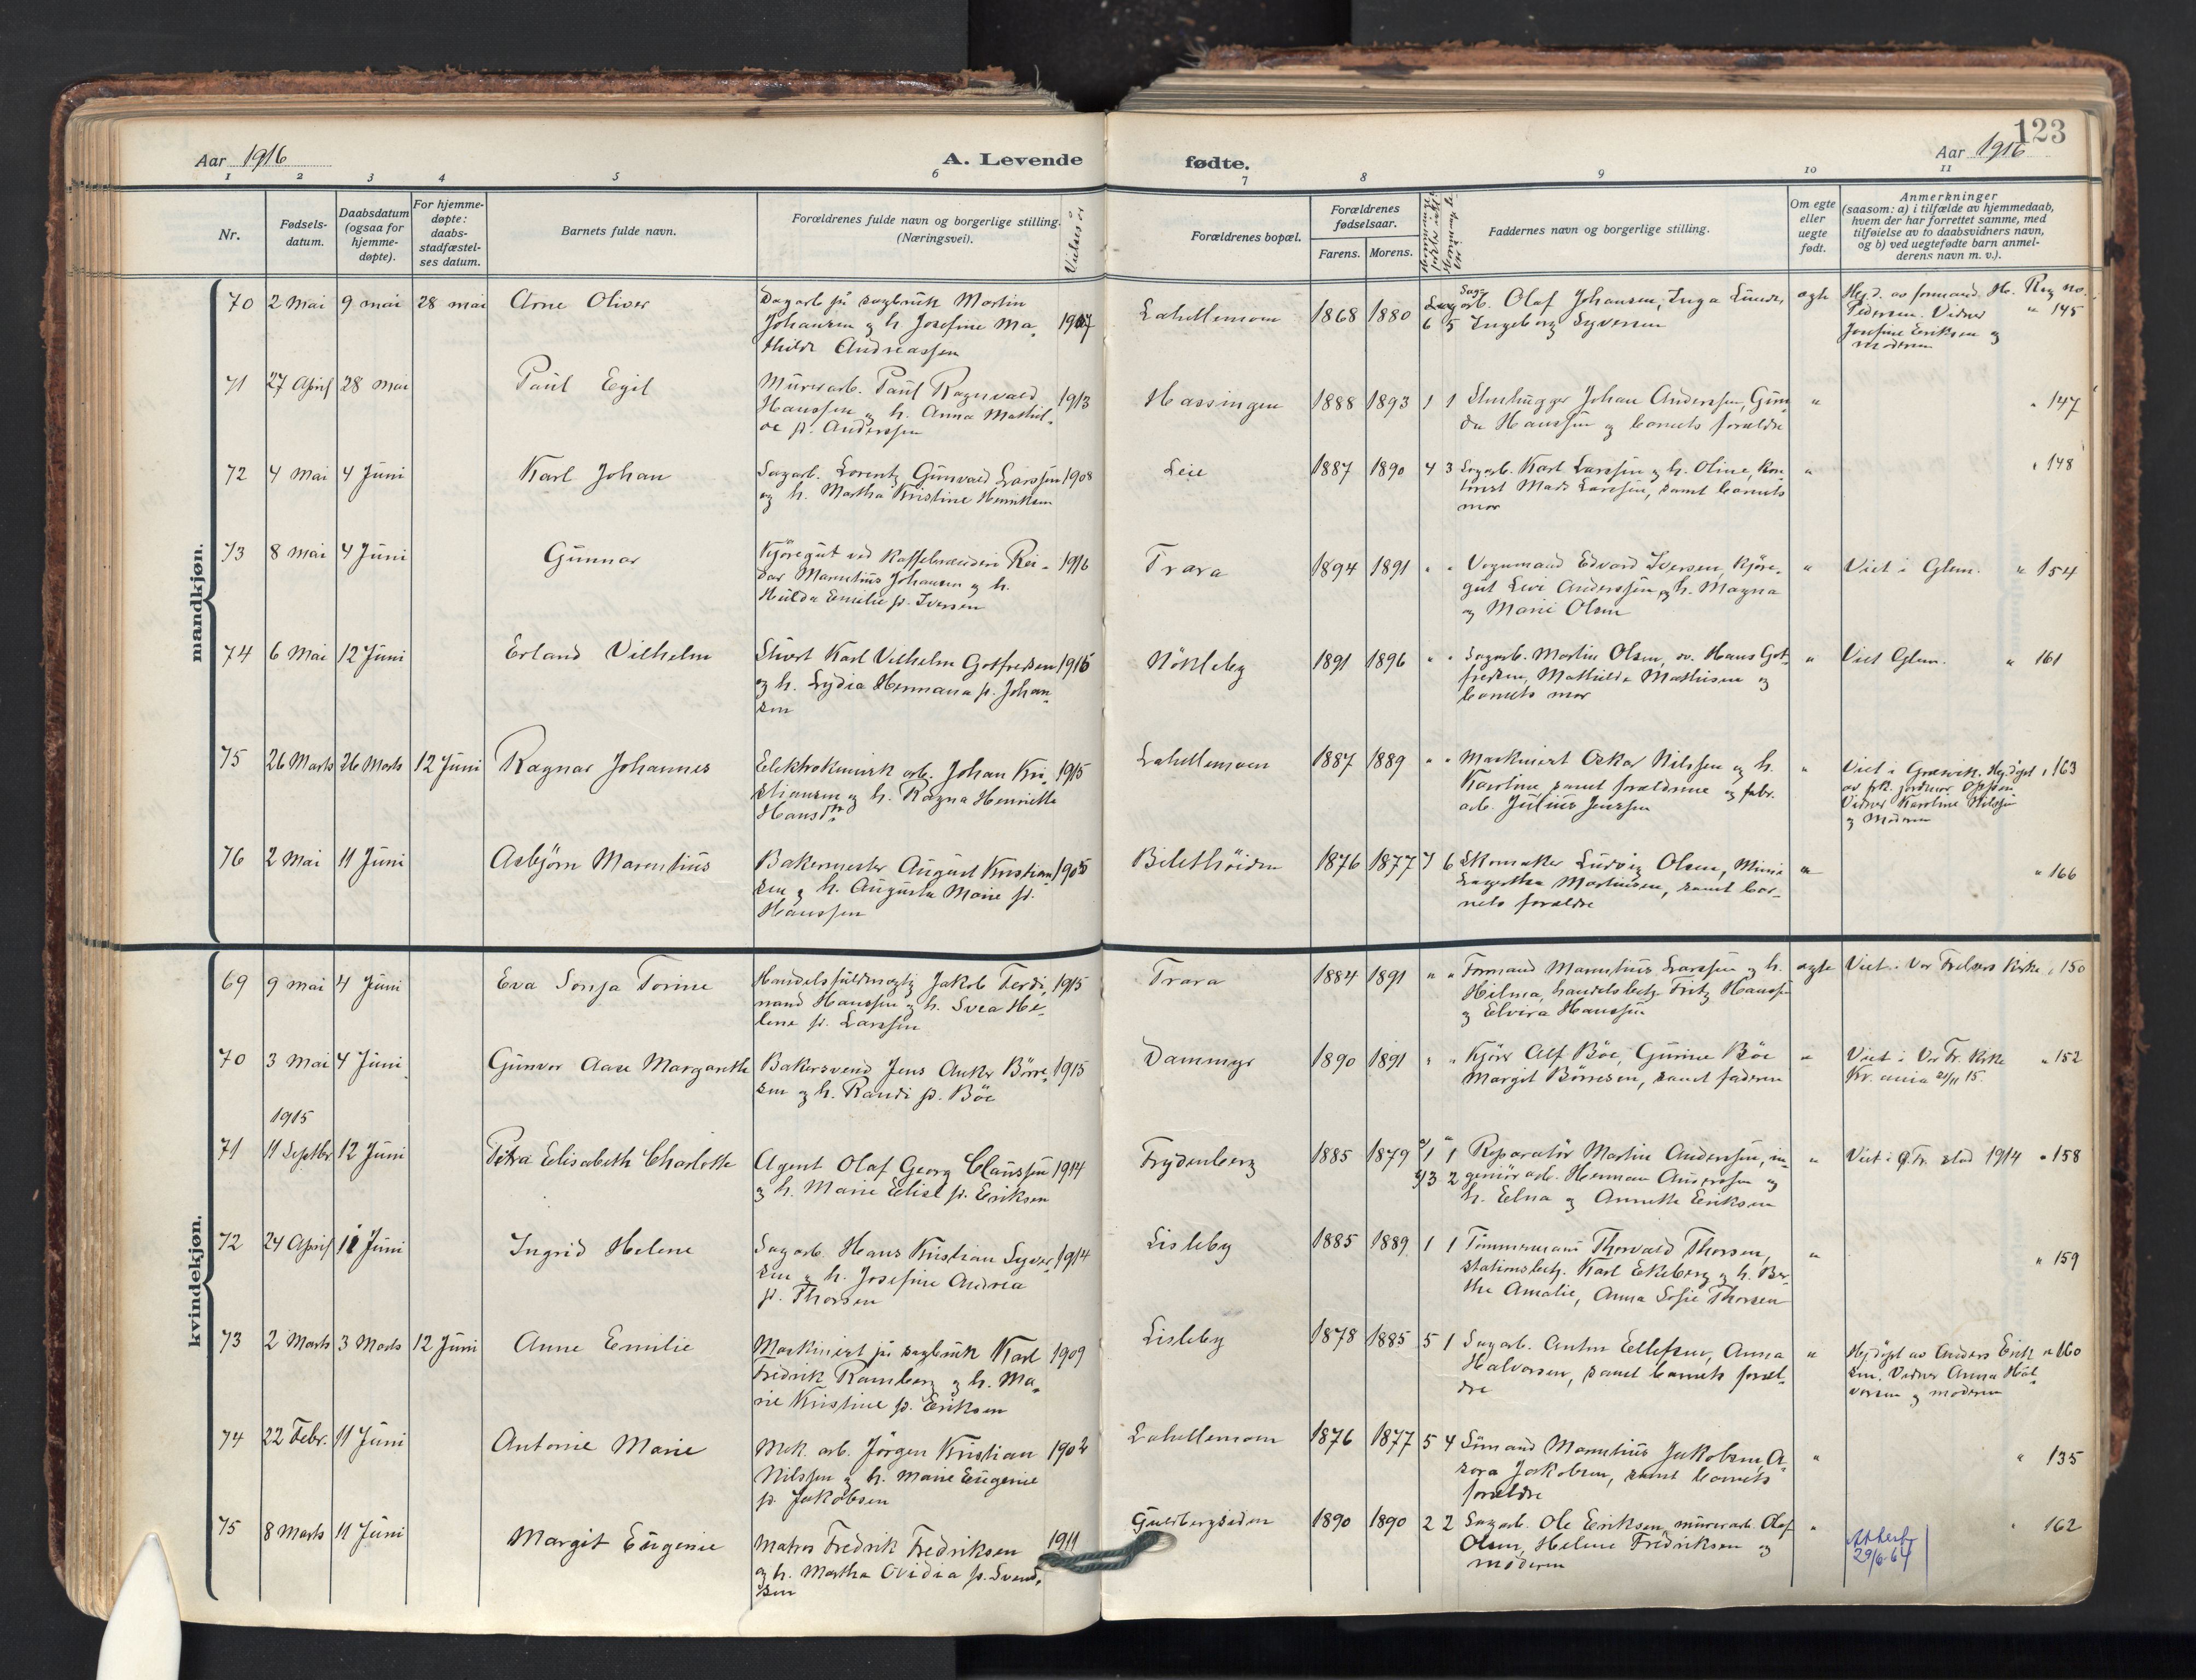 Aar 1916
A. Levende
1 2 3 4 5 6
Nr.
Fødsels-
datum.
Daabsdatum
(ogsaa for
hjemme-
døpte).
For hjemme-
døpte:
daabs-
stadfæstel-
ses datum.
Barnets fulde navn.
Forældrenes fulde navn og borgerlige stilling.
(Næringsvei).
Vielses år
mandkjøn.
70 2 Mai 9 mai 28 mai Arne Oliver
Dagarb på sagbruk Martin
Johansen og h. Josefine Ma-
thilde Andreassen
1907
71 27 April 28 mai Paul Egil
Murerarb. Paul Ragnvald
Hanssen og h. Anna Mathil-
de f. Anderssen
1913
72 4 Mai 4 Juni Karl Johan
Sagarb. Lorentz Gunvald Larssen 1908
og h. Martha Kristine Henriksen
73 8 mai 4 Juni Gunnar
Kjøregut ved Kaffebrænderi Rei-
dar Marentius Johansen og h.
Hulda Emilie f. Iversen
1916
74 6 Mai 12 Juni Erland Vilhelm
Stuert Karl Vilhelm Gotfredsen 1915
og h. Lydia Hermana f. Johan-
sen
75 26 Marts 26 Marts 12 Juni Ragnar Johannes
Elektrokemisk arb. Johan Kri-
stiansen og h. Ragna Henriette
Hansdtr
1915
76 2 Mai 11 Juni Asbjørn Marentius
Bakermester August Kristian-
sen og h. Augusta Marie f.
Hanssen
1905
kvindekjøn.
69 9 mai 4 Juni Eva Sonja Torine
Handelsfuldmægtig Jakob Ferdi-
nand Hanssen og h. Svea He-
lene f. Larssen
1915
70 3 Mai 4 Juni Gunvor Aase Margarethe
Bakersvend Jens Anker Børre-
sen og h. Randi f. Böe
1915
1915
71 11 Septbr 12 Juni Petra Elisabeth Charlotte
Agent Olaf Georg Claussen 1914
og h. Marie Elise f. Eriksen
72 24 April 11 Juni Ingrid Helene
Sagarb. Hans Kristian Syver-
sen og h. Josefine Andrea
f. Thorsen
1914
73 2 Marts 3 Marts 12 Juni Anne Emilie
Maskinist på sagbruk Karl
Fredrik Ramberg og h. Ma-
rie Kristine f. Eriksen
1909
74 22 Febr. 11 Juni Antonie Marie
Mek. arb. Jörgen Kristian
Nilssen og h. Marie Eugenie
f. Jakobsen
75 8 Marts 11 Juni Margit Eugenie
Matros Fredrik Fredriksen
og h. Martha Ovidia f. Svend-
sen
1911
123
fødte.
Aar 1916
7 8 9 10 11
Forældrenes bopæl.
Forældrenes
fødselsaar.
Farens. Morens.
Faddernes navn og borgerlige stilling.
Om egte
eller
uegte
født.
Anmerkninger
(saasom: a) i tilfælde av hjemmedaab,
hvem der har forrettet samme, med
tilføielse av to daabsvidners navn,
og b) ved uegtefødte barn anmel-
derens navn m. v.).
Lahellemoen 1868 1880 6 5
Sagarb. Olaf Johansen, Inga Lunde,
Ingeborg Syversen
egte
Hjd. av formand H. Reg no.
Pedersen. Vidner " 145
Josefine Eriksen og
moderen
Hassingen 1888 1893 1 1
Stenhugger Johan Anderssen, Gun-
da Hanssen og barnets forældre
" " 147
Leie 1887 1890 4 3
Sagarb. Karl Larssen og h. Oline, Kon-
torist Mads Larssen, samt barnets
mor
" " 148
Trara 1894 1891 " "
Vognmand Edvard Iversen, Kjøre-
gut Levi Anderssen og h. Magna
og Marie Olsen
" Viet i Glem. " 154
Nökleby 1891 1896 " "
Sagarb. Martin Olsen, sv. Hans Got-
fredsen, Mathilde Mathisen og
barnets mor
" Viet Glem. " 161
Lahellemoen 1887 1889 " "
Maskinist Oskar Nilssen og h.
Karoline samt forældrene og fabr.
arb. Julius Jenssen
" Viet i Græsvik. Hj.døpt " 163
av frk. jordmor Oppen
Vidner Karoline Nilssen
og Moderen
Bilethöiden 1876 1877 7 6
Skomaker Ludvig Olsen, Mimi
Lagertha Martinsen, samt bar-
nets forældre
" " 166
Trara 1884 1891 " "
Formand Marentius Larssen og h.
Hilma, handelsbetj. Fritz Hanssen
og Elvira Hanssen
egte Viet i Vor Frelsers Kirke " 150
Dammyr 1890 1891 " "
Kjörer Alf Böe, Gurine Böe
Margit Børresen, samt faderen
" Viet i Vor Fr. Kirke " 152
Kr.ania 21/11 15.
Frydenberg 1885 1879 a/ 1 1
b/ 3 2
Reparatør Martin Anderssen, in-
geniörarb. Herman Anderssen og
h. Elna og Annette Eriksen
" Viet i F.stad 1914 " 158
Lisleby 1885 1889 1 1
Tømmermand Thorvald Thorsen,
stationsbetj. Karl Ekeberg og h. Ber-
the Amalie, Anna Sofie Thorsen
" " 159
Lisleby 1878 1885 5 1
Sagarb. Anton Ellefsen, Anna
Halvorsen, samt barnets foræl-
dre
" Hj.døpt av Anders Erik- " 160
sen. Vidner Anna Hal-
vorsen og moderen
Lahellemoen 1876 1877 5 4
Simand Marentius Jakobsen, A-
sora Jakobsen, samt barnets
forældre
" " 135
Guldbergsiden 1890 1890 2 2
Sagarb. Ole Eriksen, murerarb. Olaf
Olsen, Helene Fredriksen og
moderen
" " 162
29/6-64